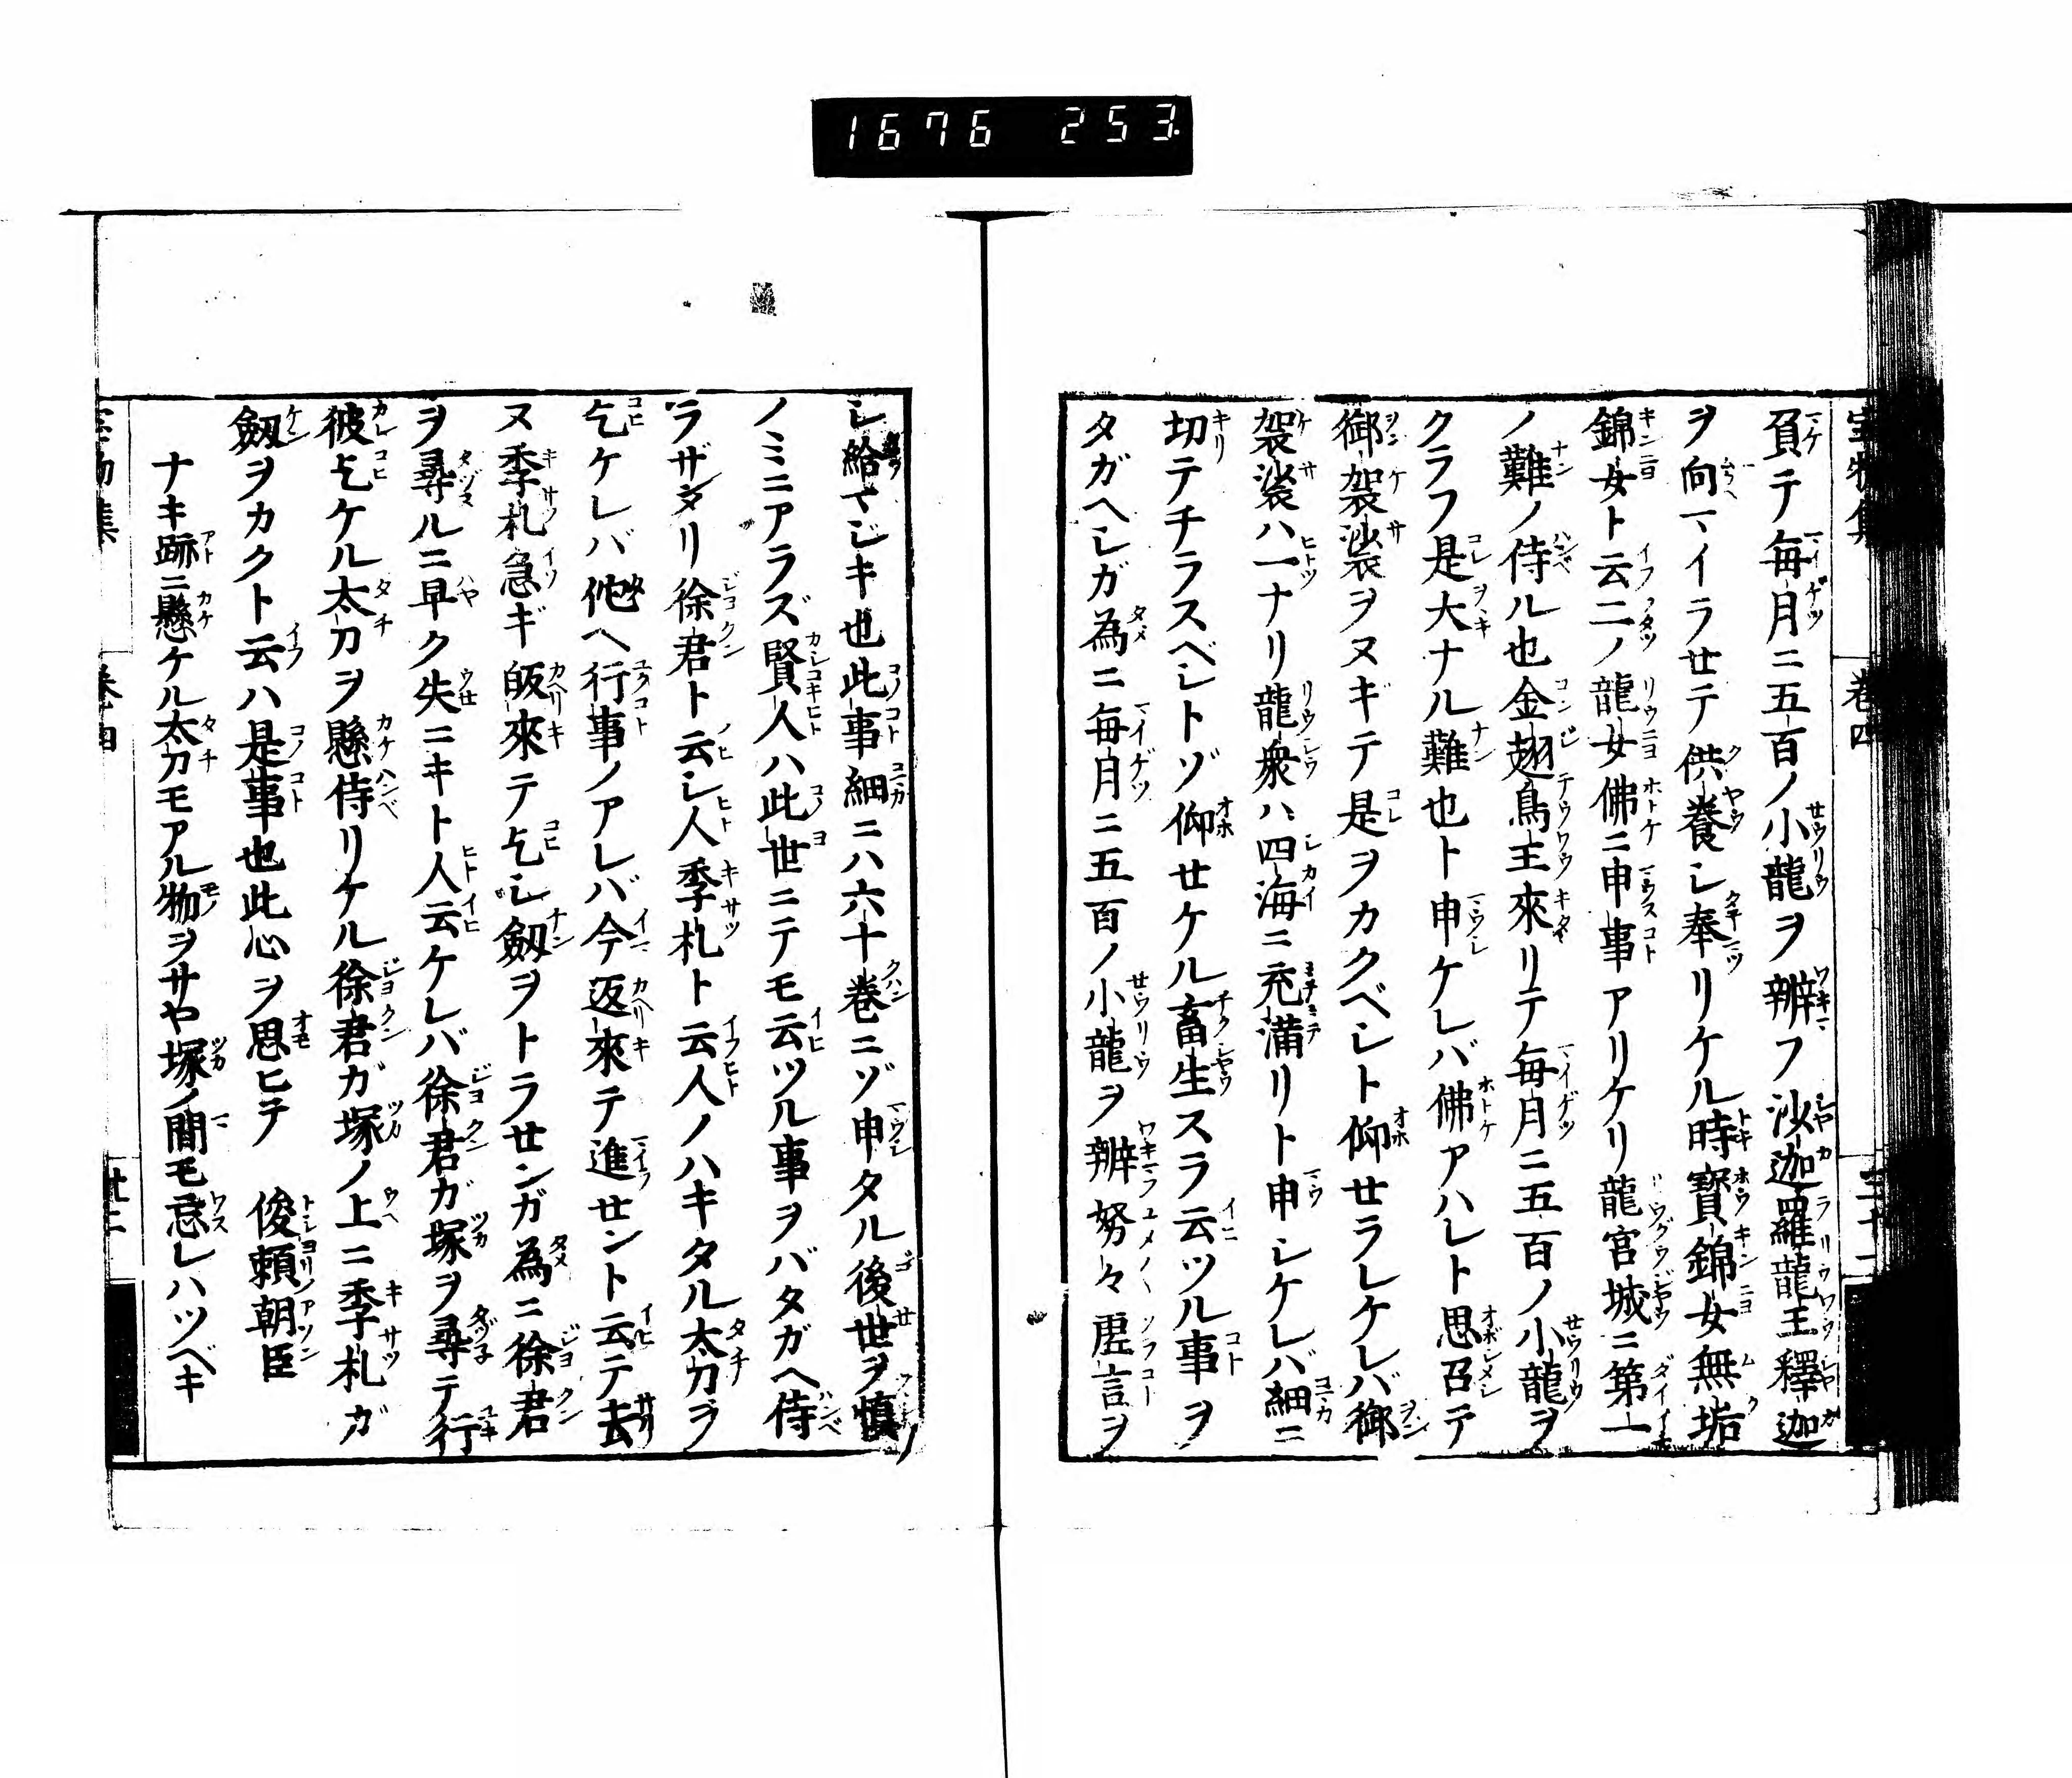 1676 253
負テ毎月ニ五百ノ小龍ヲ辨フ沙迦羅龍王釋迦
ヲ向マイラせテ供養シ奉リケル時寳錦女無垢
錦女ト云二ノ龍女佛ニ申事アリケリ龍宮城ニ第一
ノ難ノ侍ル也金翅鳥王來リテ毎月ニ五百ノ小龍ヲ
クラフ是大ナル難也ト申ケレバ佛アハレト思召テ
御袈裟ヲヌギテ是ヲカクベシト仰せラレケレバ御
袈裟ハ一ナリ龍衆ハ四海ニ充滿リト申シケレバ細ニ
切テチラスベシトゾ仰せケル畜生スラ云ツル事ヲ
タガヘシガ為ニ毎月ニ五百ノ小龍ヲ辨努々虚言ヲ
シ給マジキ也此事細ニハ六十巻ニゾ申タル後世ヲ慎
ノミニアラズ賢人ハ此世ニテモ云ツル事ヲバタガヘ侍
ラザタリ徐君ト云シ人季札ト云人ノハキタル太刀ヲ
乞ケレバ他ヘ行事ノアレバ今返來テ進せント云テ去
ヌ季札急ギ皈來テ乞シ劔ヲトラせンガ為ニ徐君
ヲ尋ルニ早ク失ニキト人云ケレバ徐君ガ塚ヲ尋テ行
彼乞ケル太刀ヲ懸侍リケル徐君ガ塚ノ上ニ季札ガ
劔ヲカクト云ハ是事也此心ヲ思ヒテ　俊頼朝臣
ナキ跡ニ懸ケル太刀モアル物ヲサヤ塚ノ間モ忘レハツベキ